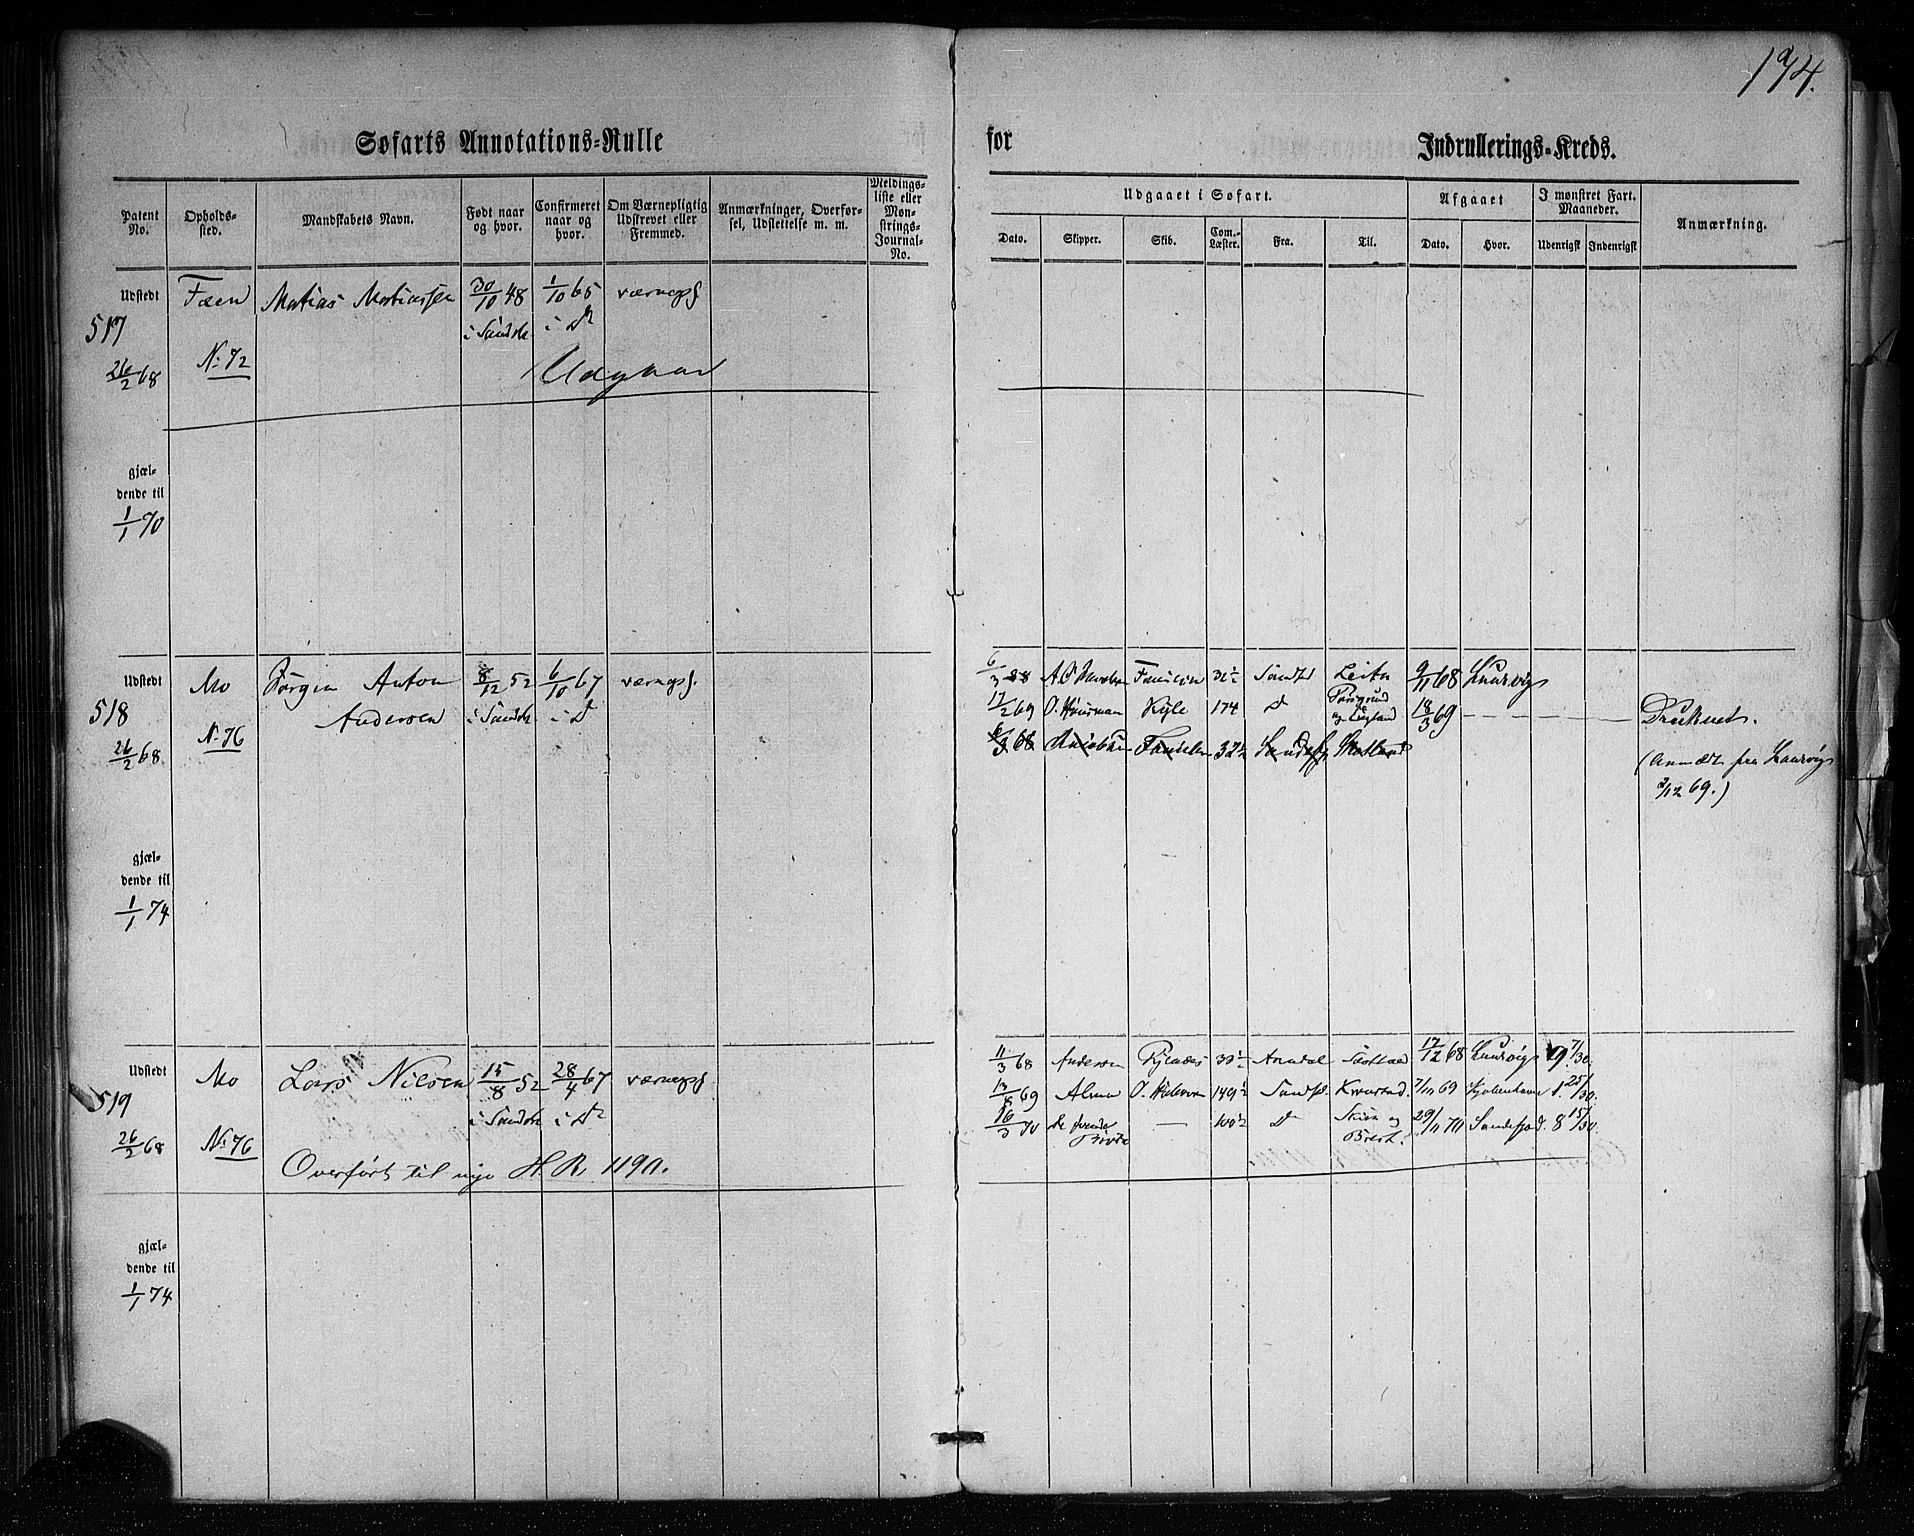 194.
Søfarts Annotations-Rulle for Indrullerings-Kreds.
Patent No.
Opholds-sted.
Mandskabets Navn.
Født naar og hvor.
Confirmeret naar og hvor.
Om Værnepligtig Udskrevet eller Fremmed.
Anmærkninger, Overførsel, Udslettelse m. m.
Meldings-liste eller Møn-strings-Journal-No.
Udgaaet i Søfart.
Afgaaet
I mønstret Fart. Maaneder.
Anmærkning.
Dato. Skipper. Skib. Com.-Læster. Fra. Til. Dato. Hvor. Udenrigst Indenrigst
Udstedt Fæen Matias Matiassen 30/10 48 1/10 65 værnepl.
517 i Sandeh. i Do
26/2 68 No 72 Udgaar
gjæl-
dende til
1/1 70
Udstedt Mo Jørgen Anton 8/12 52 6/10 67 værnepl. 6/3 68 A. C. Jacobsen 32½ Sandfd Leith 9/11 68 Laurvig
518 Andersen i Sandeh. i Do 17/2 69 Kyle 174 Do Porsgrund og England 18/3 69 Druknet.
26/2 68 No 76 6/3 68 32½ Sandefj. Skotland (Anmeldt fra Laurvig
2/12 69.)
gjæl-
dende til
1/1 74
Udstedt Mo Lars Nilsen 15/8 52 28/4 67 værnepl. 11/3 68 Andersen Pylades 30½ Arendal Skotland 17/12 68 Laurvig 9 7/30.
519 i Sandeh. i Do 13/8 69 Alma 149½ Sandfd. Kronstad 7/11 69 Kjøbenhavn 1. 25/30.
26/2 68 No 76 16/3 70 De tvende Brødre — 100½ Do og Brest. 29/11 70 Sandefjod. 8 15/30.
Overført til nye H. R. 1190.
gjæl-
dende til
1/1 74